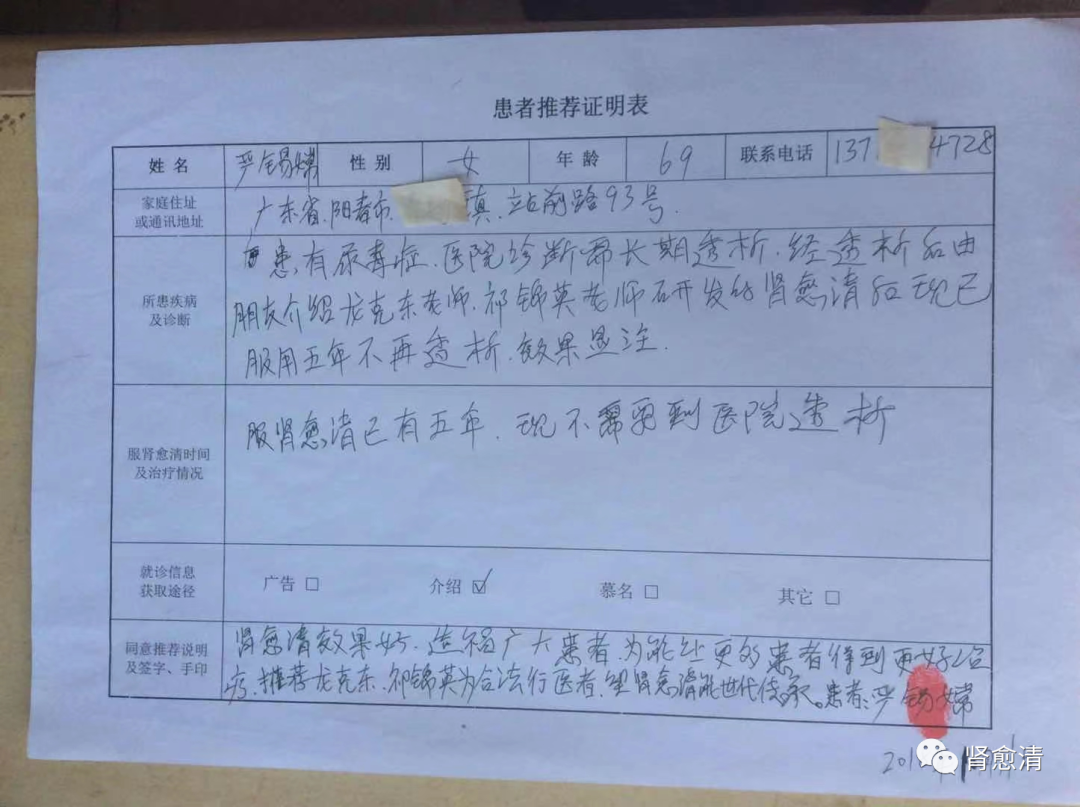 患者推荐证明表
姓名 严锡嫦 性别 女 年龄 69 联系电话 137 4728
家庭住址
或通讯地址
广东省.阳春市. 镇.站前路93号.
所患疾病
及诊断
患有尿毒症.医院诊断需长期透析.经透析后由
朋友介绍龙克东老师.祁锦英老师研发的肾愈清后现已
服用五年不再透析.效果显注.
服肾愈清时间
及治疗情况
服肾愈清已有五年.现不需要到医院透析
就诊信息
获取途径
广告 □ 介绍 ☑ 慕名 □ 其它 □
同意推荐说明
及签字、手印
肾愈清效果好.造福广大患者.为能让更多患者得到更好治
疗.推荐龙克东.祁锦英为合法行医者.望肾愈清能世代传承。患者:严锡嫦
201
肾愈清